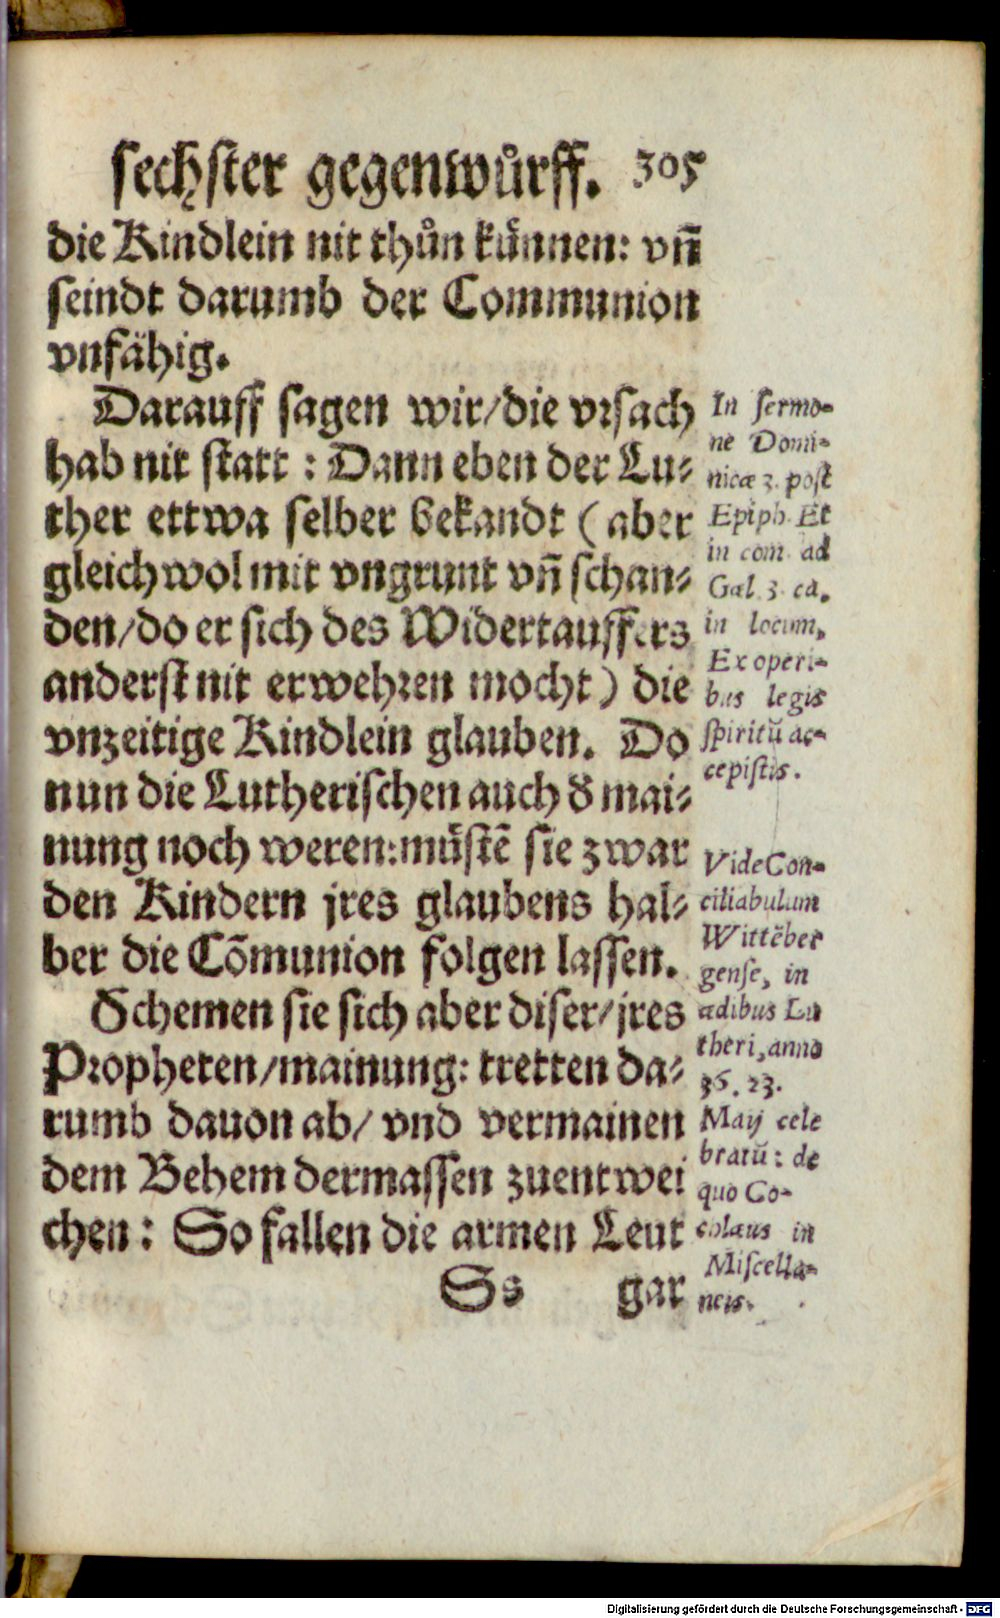 sechster gegenwůrff. 305
die Kindlein nit thůn künnen: vñ
seindt darumb der Communion
vnfähig.
Darauff sagen wir/die vrsach
hab nit statt : Dann eben der Lu⸗
ther ettwa selber bekandt ( aber
gleichwol mit vngrunt vñ schan⸗
den/do er sich des Widertauffers
anderst nit erwehren mocht) die
vnzeitige Kindlein glauben. Do
nun die Lutherischen auch d mai⸗
nung noch weren:müstẽ sie zwar
den Kindern jres glaubens hal⸗
ber die Cõmunion folgen lassen.
Schemen sie sich aber diser/jres
Propheten/mainung: tretten da⸗
rumb dauon ab/ vnd vermainen
dem Behem dermassen zuentwei
chen : So fallen die armen Leut
Ss gar
In sermo-
ne Domi-
nicæ 3. post
Epiph. Et
in com. ad
Gal. 3. ca.
in locum,
Ex operi-
bus legis
spiritũ ac-
cepistis.
Vide Con-
ciliabulum
Wittẽber
gense, in
ædibus Lu
theri, anno
36. 23.
Maij cele
bratũ : de
quo Co-
colæus in
Miscella-
neis.
Digitalisierung gefördert durch die Deutsche Forschungsgemeinschaft - DFG